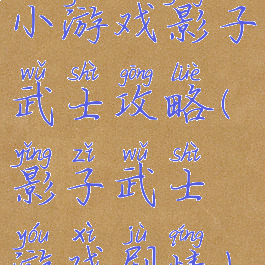 小游戏影子
wǔ shì gōng lüè
武士攻略(
yǐng zǐ wǔ shì
影子武士
yóu xì jù qíng
游戏剧情)